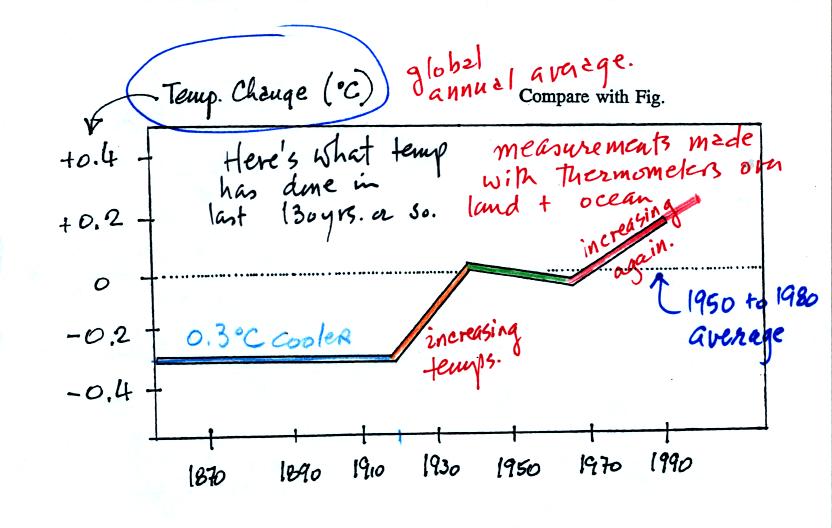 global
annual average.
Temp. Change (°C)
Compare with Fig.
+0.4
+0.2
0
-0.2
-0.4
Here's what temp
has done in
last 130yrs. or so.
measurements made
with thermometers over
land + ocean
increasing
again.
1950 to 1980
average
0.3°C cooler
increasing
temps.
1870 1890 1910 1930 1950 1970 1990